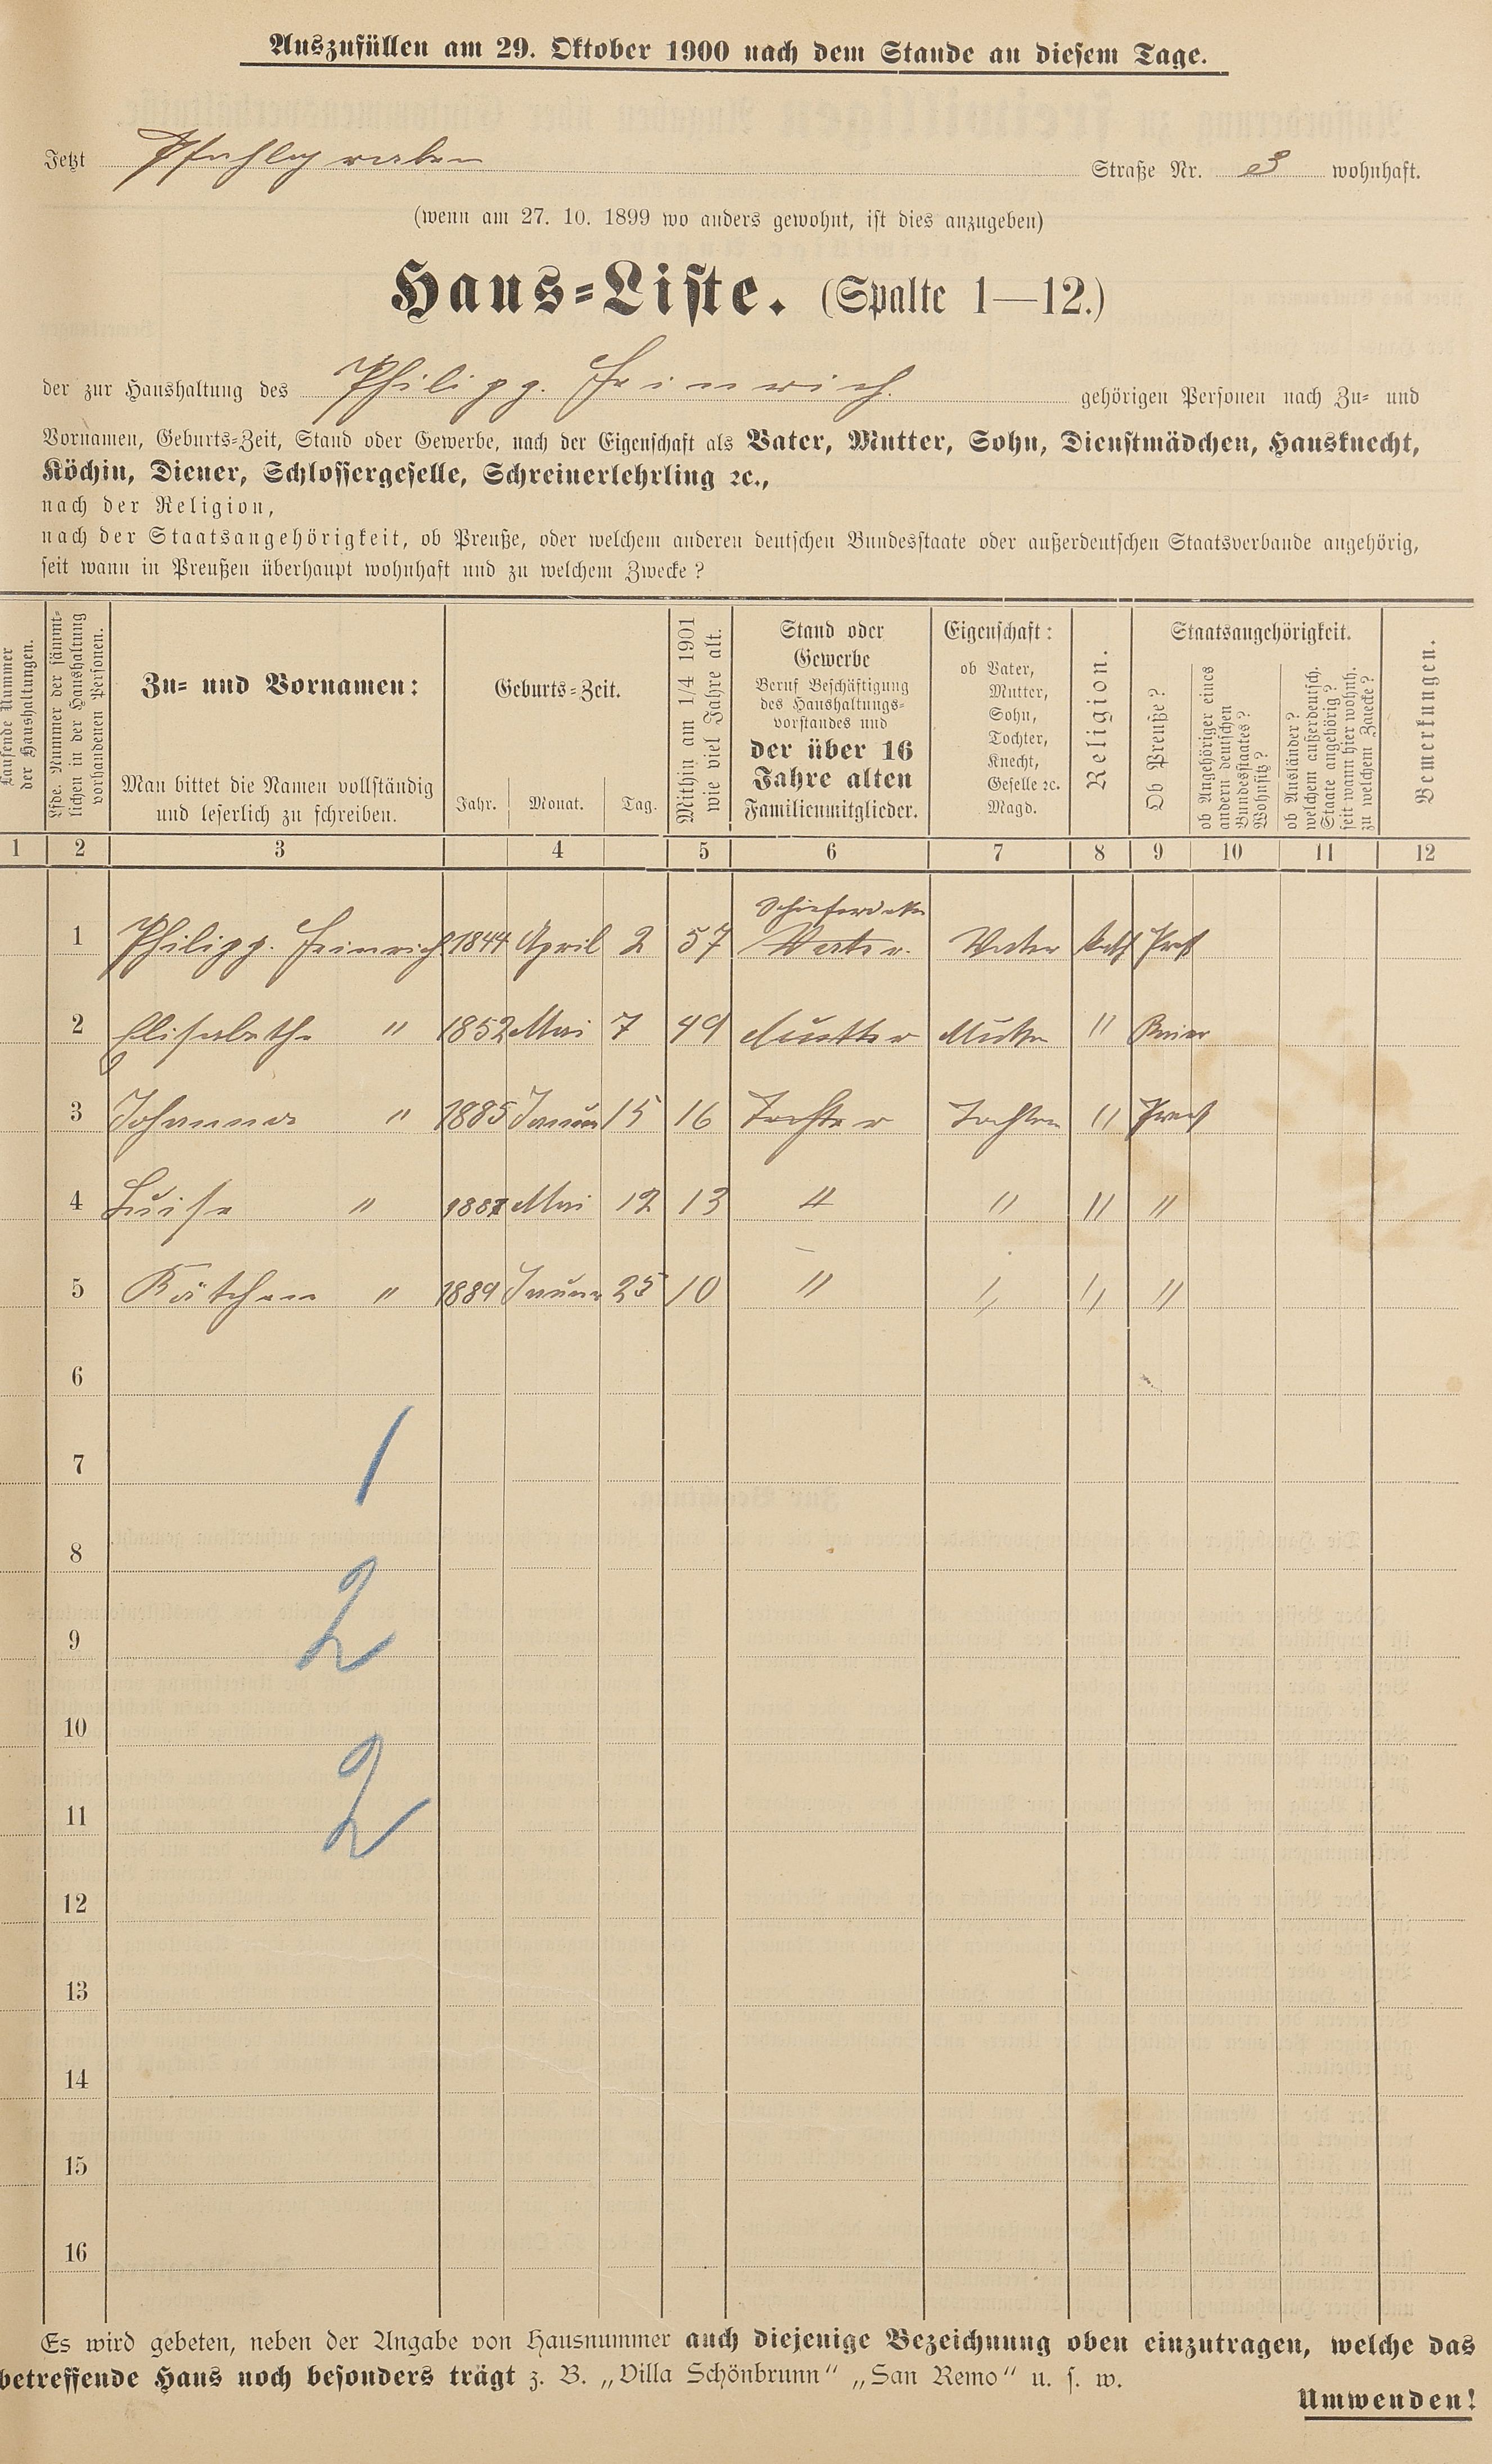 Auszufüllen am 29. Oktober 1900 nach dem Stande an diesem Tage.
Jetzt Pfahlgraben Straße Nr. 3 wohnhaft.
(wenn am 27. 10. 1899 wo anders gewohnt, ist dies anzugeben)
Haus-Liste. (Spalte 1—12.)
der zur Haushaltung des Philipp. Heinrich. gehörigen Personen nach Zu- und
Vornamen, Geburts-Zeit, Stand oder Gewerbe, nach der Eigenschaft als Vater, Mutter, Sohn, Dienstmädchen, Hausknecht,
Köchin, Diener, Schlossergeselle, Schreinerlehrling ꝛc.,
nach der Religion,
nach der Staatsangehörigkeit, ob Preuße, oder welchem anderen deutschen Bundesstaate oder außerdeutschen Staatsverbande angehörig,
seit wann in Preußen überhaupt wohnhaft und zu welchem Zwecke?
Laufende Nummer
der Haushaltungen.
Lfde. Nummer der sämmt-
lichen in der Haushaltung
vorhandenen Personen.
Zu- und Vornamen:
Man bittet die Namen vollständig
und leserlich zu schreiben.
Geburts-Zeit.
Jahr. Monat. Tag.
Mithin am 1/4 1901
wie viel Jahre alt.
Stand oder
Gewerbe
Beruf Beschäftigung
des Haushaltungs-
vorstandes und
der über 16
Jahre alten
Familienmitglieder.
Eigenschaft:
ob Vater,
Mutter,
Sohn,
Tochter,
Knecht,
Geselle ꝛc.
Magd.
Religion.
Staatsangehörigkeit.
Ob Preuße?
ob Angehöriger eines
andern deutschen
Bundesstaates?
Wohnsitz?
ob Ausländer?
welchem außerdeutsch.
Staate angehörig?
seit wann hier wohnh.
zu welchem Zwecke?
Bemerkungen.
1 2 3 4 5 6 7 8 9 10 11 12
Schieferdecker
1 Philipp. Heinrich 1844 April 2 57 Vater. Vater Kath Preuß
2 Elisabethe " 1852 Mai 7 49 Mutter Mutter " Baier
3 Johanna " 1885 Januar 15 16 Tochter Tochter " Preuß
4 Luise " 1887 Mai 12 13 " " " "
5 Kätchen " 1889 Januar 25 10 " " " "
6
7 1
8
9 2
10
11 2
12
13
14
15
16
Es wird gebeten, neben der Angabe von Hausnummer auch diejenige Bezeichnung oben einzutragen, welche das
betreffende Haus noch besonders trägt z. B. „Villa Schönbrunn“ „San Remo“ u. s. w.
Umwenden!